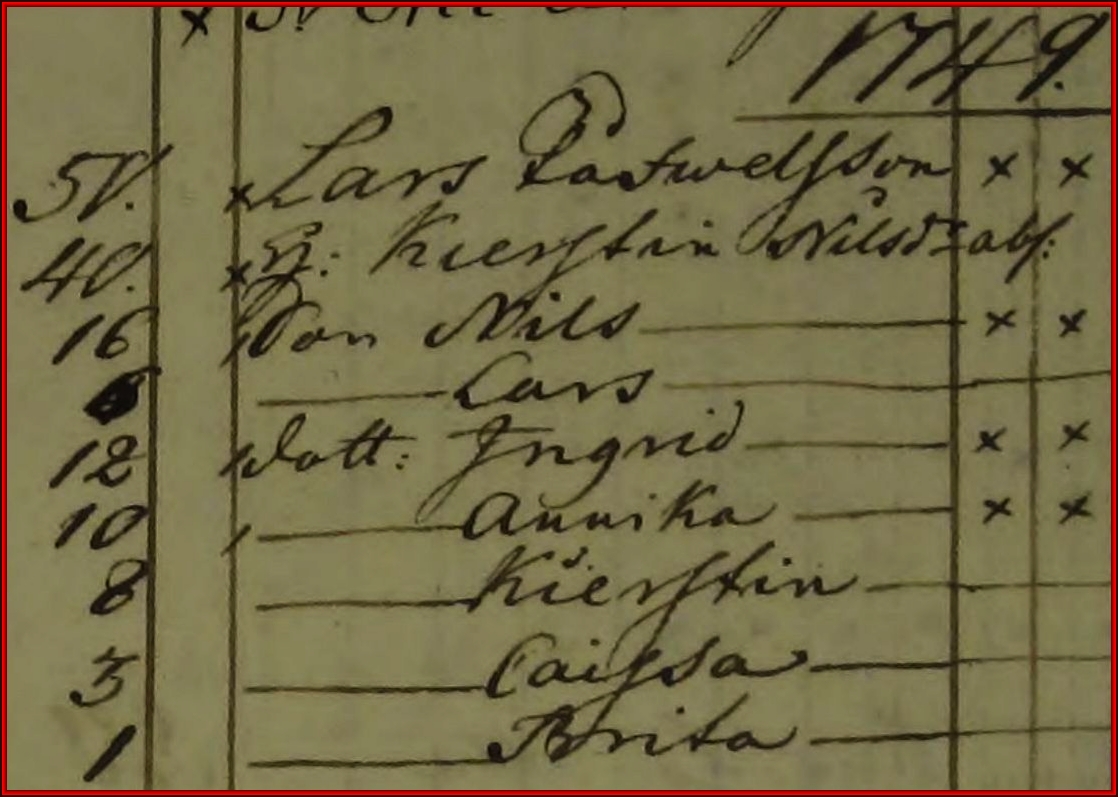 1749.
50. x Lars Påfwelsson x x
40. x H: Kierstin Nilsdr abs:
16 Son Nils x x
6 Lars
12 dott: Ingrid x x
10 Annika x x
8 Kierstin
3 Caisa
1 Brita